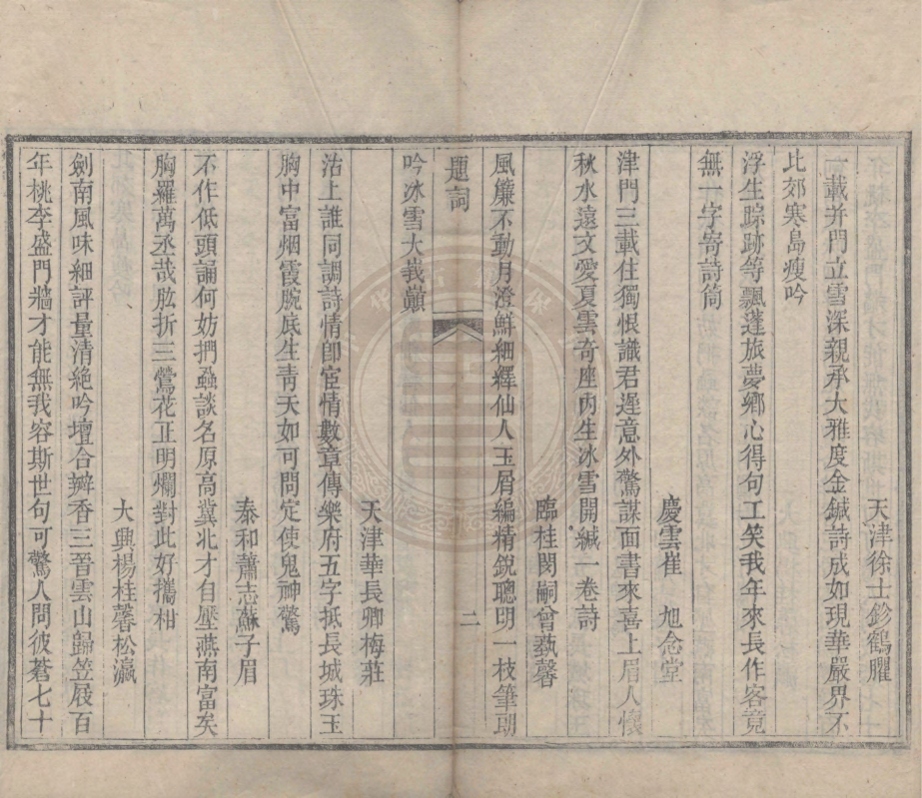 天津徐士鉁鶴臞
一載并門立雪深親承大雅度金鍼詩成如現華嚴界不
比郊寒島瘦吟
浮生踪跡等飄蓬旅夢鄉心得句工笑我年來長作客竟
無一字寄詩筒
慶雲崔旭念堂
津門三載住獨恨識君遲意外驚謀面書來喜上眉人懷
秋水遠文愛夏雲奇座內生冰雪開緘一卷詩
臨桂閔嗣曾蓺馨
風簾不動月澄鮮細繹仙人玉屑編精銳聰明一枝筆朝
題詞
二
吟冰雪大峩巔
天津華長卿梅莊
沽上誰同調詩情卽宦情數章傳樂府五字抵長城珠玉
胸中富烟霞腕底生靑天如可問定使鬼神驚
泰和蕭志蘇子眉
不作低頭誦何妨捫蝨談名原高冀北才自壓燕南富矣
胸羅萬丞哉肱折三鶯花正明爛對此好攜柑
大興楊桂馨松瀛
劍南風味細評量清絶吟壇合瓣香三晉雲山歸笠屐百
年桃李盛門牆才能無我容斯世句可驚人問彼蒼七十